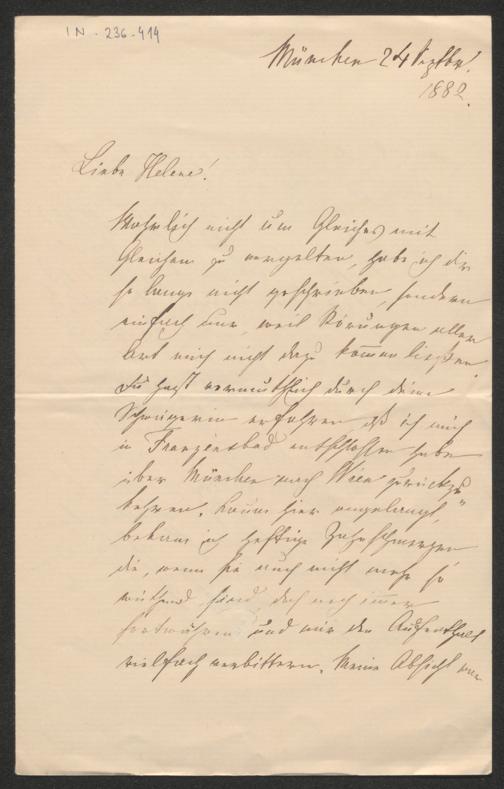 IN-236.414
München 24 Septbr.
1882.
Liebe Helene!
Wahrlich nicht um Gleiches mit
Gleichem zu vergelten, habe ich dir
so lange nicht geschrieben, sondern
einfach nur, weil Störungen aller
Art mich nicht dazu kommen ließen.
Du hast vermuthlich durch deine
Schwägerin erfahren, daß ich mich
in Franzensbad entschlossen habe
über München nach Wien zurückzu
kehren. Kaum hier angelangt,
bekam ich heftige Zahnschmerzen
die, wenn sie auch nicht mehr so
wüthend sind, doch noch immer
fortwähren und mir den Aufenthalt
vielfach verbittern. Meine Absicht war